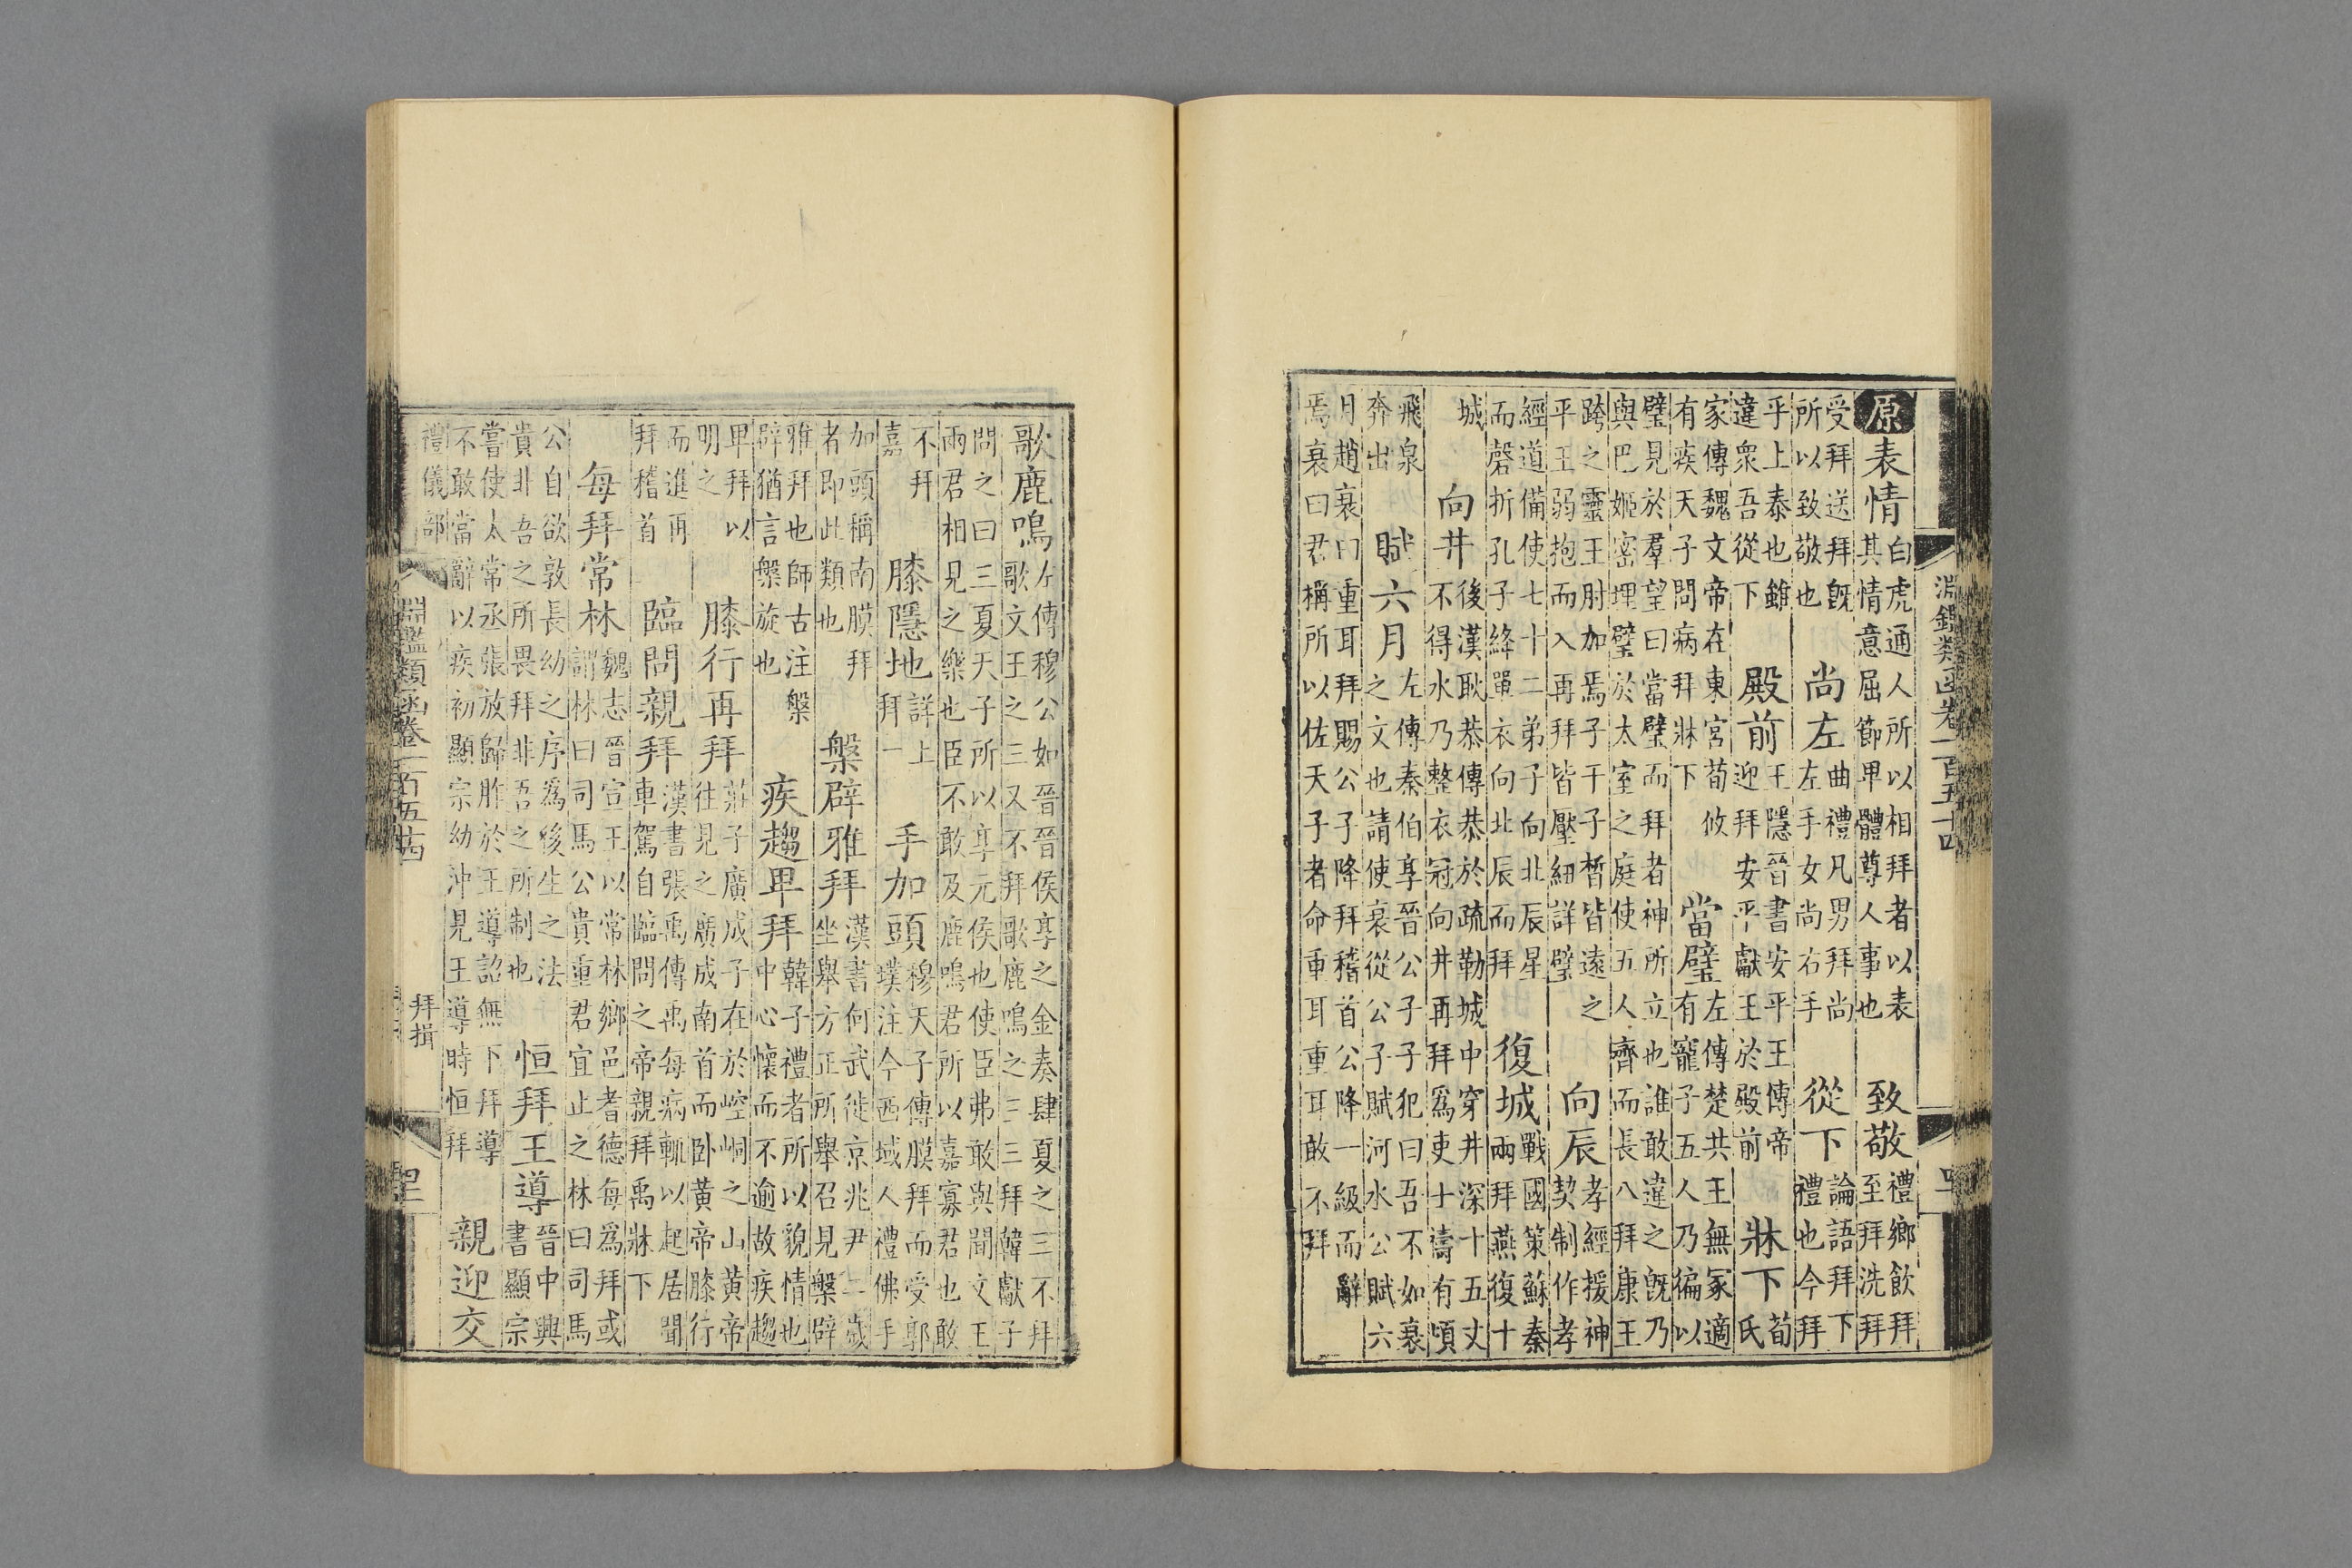 原表情白虎通人所以相拜者以表其情意屈節卑體尊人事也致敬禮鄉飲拜至拜洗拜
受拜送拜旣所以致敬也尚左曲禮凡男拜尚左手女尚右手從下論語拜下禮也今拜
乎上泰也雖違衆吾從下殿前王隱晉書安平王傳帝迎拜安平獻王於殿前牀下荀氏
家傳魏文帝在東宮荀攸有疾天子問病拜牀下當璧左傳楚共王無冢適有寵子五人乃徧以
璧見於羣望曰當璧而拜者神所立也誰敢違之旣乃與巴姬密埋璧於太室之庭使五人齊而長八拜康王
跨之靈王肘加焉子干子皙皆遠之平王弱抱而入再拜皆壓紐詳璧向辰孝經援神契制作孝
經道備使七十二弟子向北辰星而磬折孔子絳單衣向北辰而拜復城戰國策蘇秦兩拜燕復十
城向井後漢耿恭傳恭於疏勒城中穿井深十五丈不得水乃整衣冠向井再拜爲吏士禱有頃
飛泉奔出賦六月左傳秦伯享晉公子子犯曰吾不如衰之文也請使衰從公子賦河水公賦六
月趙衰曰重耳拜賜公子降拜稽首公降一級而辭焉衰曰君稱所以佐天子者命重耳重耳敢不拜
淵鑑類函卷一百五十四
歌鹿鳴左傳穆公如晉晉侯享之金奏肆夏之三不拜歌文王之三又不拜歌鹿鳴之三三拜韓獻子
問之曰三夏天子所以享元侯也使臣弗敢與聞文王兩君相見之樂也臣不敢及鹿鳴君所以嘉寡君也敢
不拜嘉膝隱地詳上拜一手加頭穆天子傳膜拜而受郭璞注今西域人禮佛手
加頭稱南膜拜者即此類也槃辟雅拜漢書何武徙京兆尹二歲坐舉方正所舉召見槃辟
雅拜也師古注槃辟猶言槃旋也疾趨卑拜韓子禮者所以貌情也中心懷而不逾故疾趨
卑拜以明之膝行再拜莊子廣成子在於崆峒之山黃帝往見之廣成南首而卧黃帝膝行
而進再拜稽首臨問親拜漢書張禹傳禹每病輒以起居聞車駕自臨問之帝親拜禹牀下
每拜常林魏志晉宣王以常林鄉邑耆德每爲拜或謂林曰司馬公貴重君宜止之林曰司馬
公自欲敦長幼之序爲後生之法貴非吾之所畏拜非吾之所制也恒拜王導晉中興書顯宗
嘗使太常丞張放歸胙於王導詔無下拜導不敢當辭以疾初顯宗幼沖見王導時恒拜親迎交
禮儀部
淵鑑類函卷一百五十四
拜揖